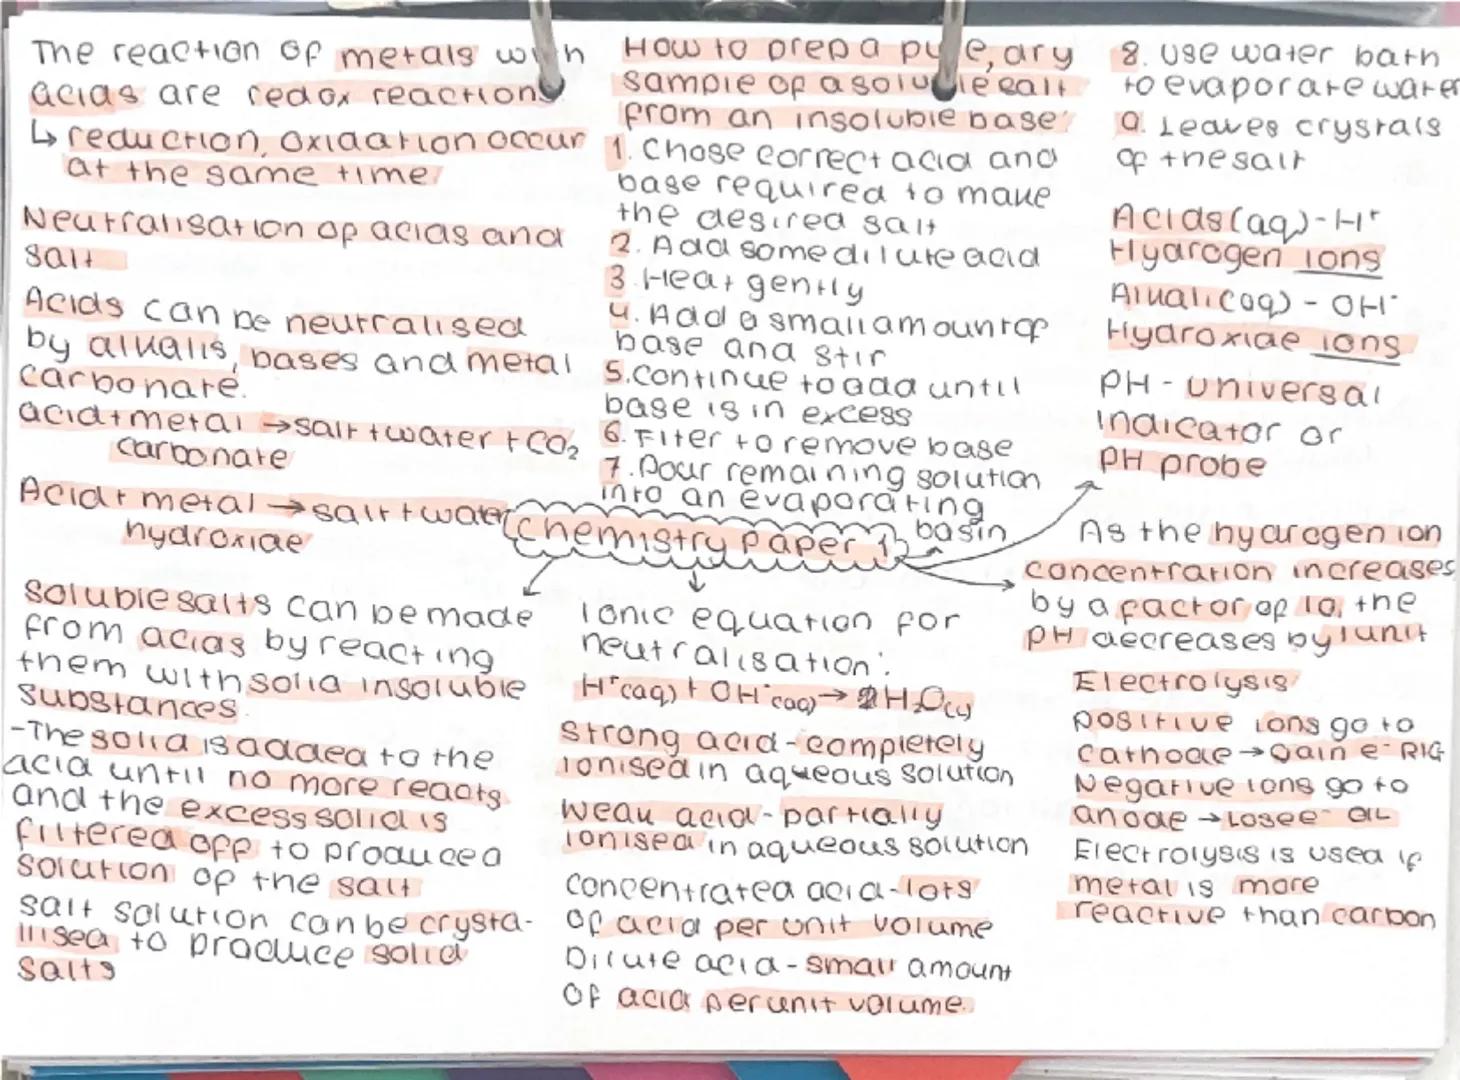 The reaction of metals with
acids are redox reactions
↳ reduction, oxidation occur
at the same time
Neutralisation of acids and
salt
Acids can be neutralised
by alkalis, bases and metal
carbonate.
acid + metal → salt + water + CO₂
carbonate
Acid + metal → salt + water
hydroxide
Soluble salts can be made
from acids by reacting
them with solid insoluble
substances.
-The solid is added to the
acid until no more reacts
and the excess solid is
filtered off to produce a
solution of the salt
salt solution can be crysta-
llised to produce solid
salts
How to prep a pure, dry
sample of a soluble salt
from an insoluble base:
1. Chose correct acid and
base required to make
the desired salt
2. Add some dilute acid
3. Heat gently
4. Add a small amount of
base and stir
5. Continue to add until
base is in excess
6. Filter to remove base
7. Pour remaining solution
into an evaporating
basin
Chemistry paper 1
Ionic equation for
neutralisation:
H⁺(aq) + OH⁻(aq) → H₂O(l)
Strong acid - completely
ionised in aqueous solution
Weak acid - partially
ionised in aqueous solution
Concentrated acid - lots
of acid per unit volume
Dilute acid - small amount
of acid per unit volume.
8. Use water bath
to evaporate water
9. Leaves crystals
of the salt
Acids (aq) - H⁺
Hydrogen ions
Alkali (aq) - OH⁻
Hydroxide ions
PH - universal
indicator or
PH probe
As the hydrogen ion
concentration increases
by a factor of 10, the
PH decreases by 1 unit
Electrolysis
positive ions go to
cathode → Gain e⁻ RIG
Negative ions go to
anode → Lose e⁻ OIL
Electrolysis is used if
metal is more
reactive than carbon